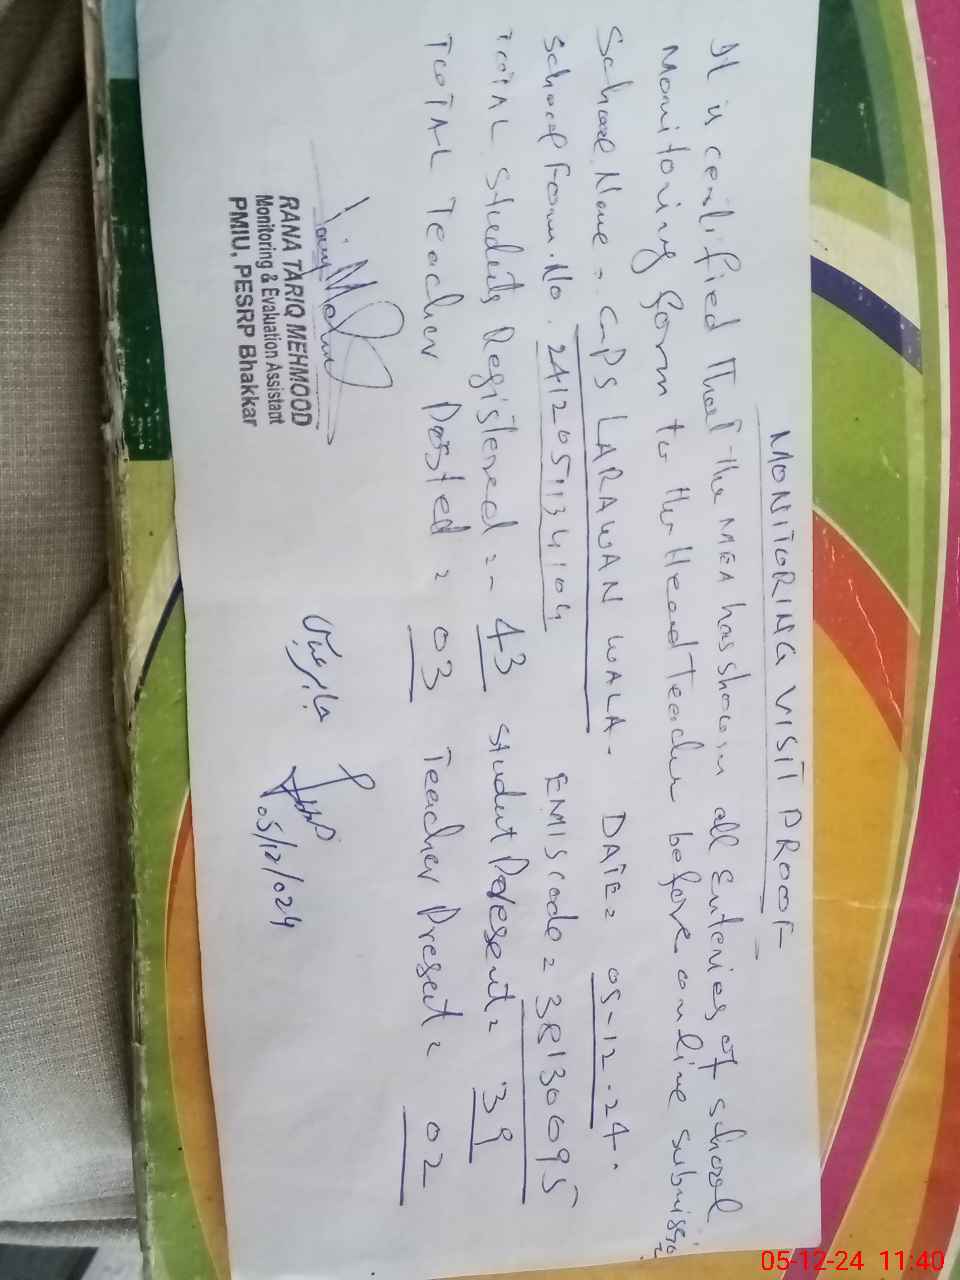 MONITORING VISIT PROOF
It is certified that the MEA has shown all Enteries of school
Monitoring form to the Head Teacher before online submission
School Name = GPS LARAWAN WALA. DATE= 05-12-24.
School Form.No. 2412051134104 EMIS code = 38130095
TOTAL Students Registered =- 43 Student Present= 39
TOTAL Teacher Posted = 03 Teacher Present = 02
RANA TARIQ MEHMOOD
Monitoring & Evaluation Assistant
PMIU, PESRP Bhakkar
05/12/024
05-12-24 11:40